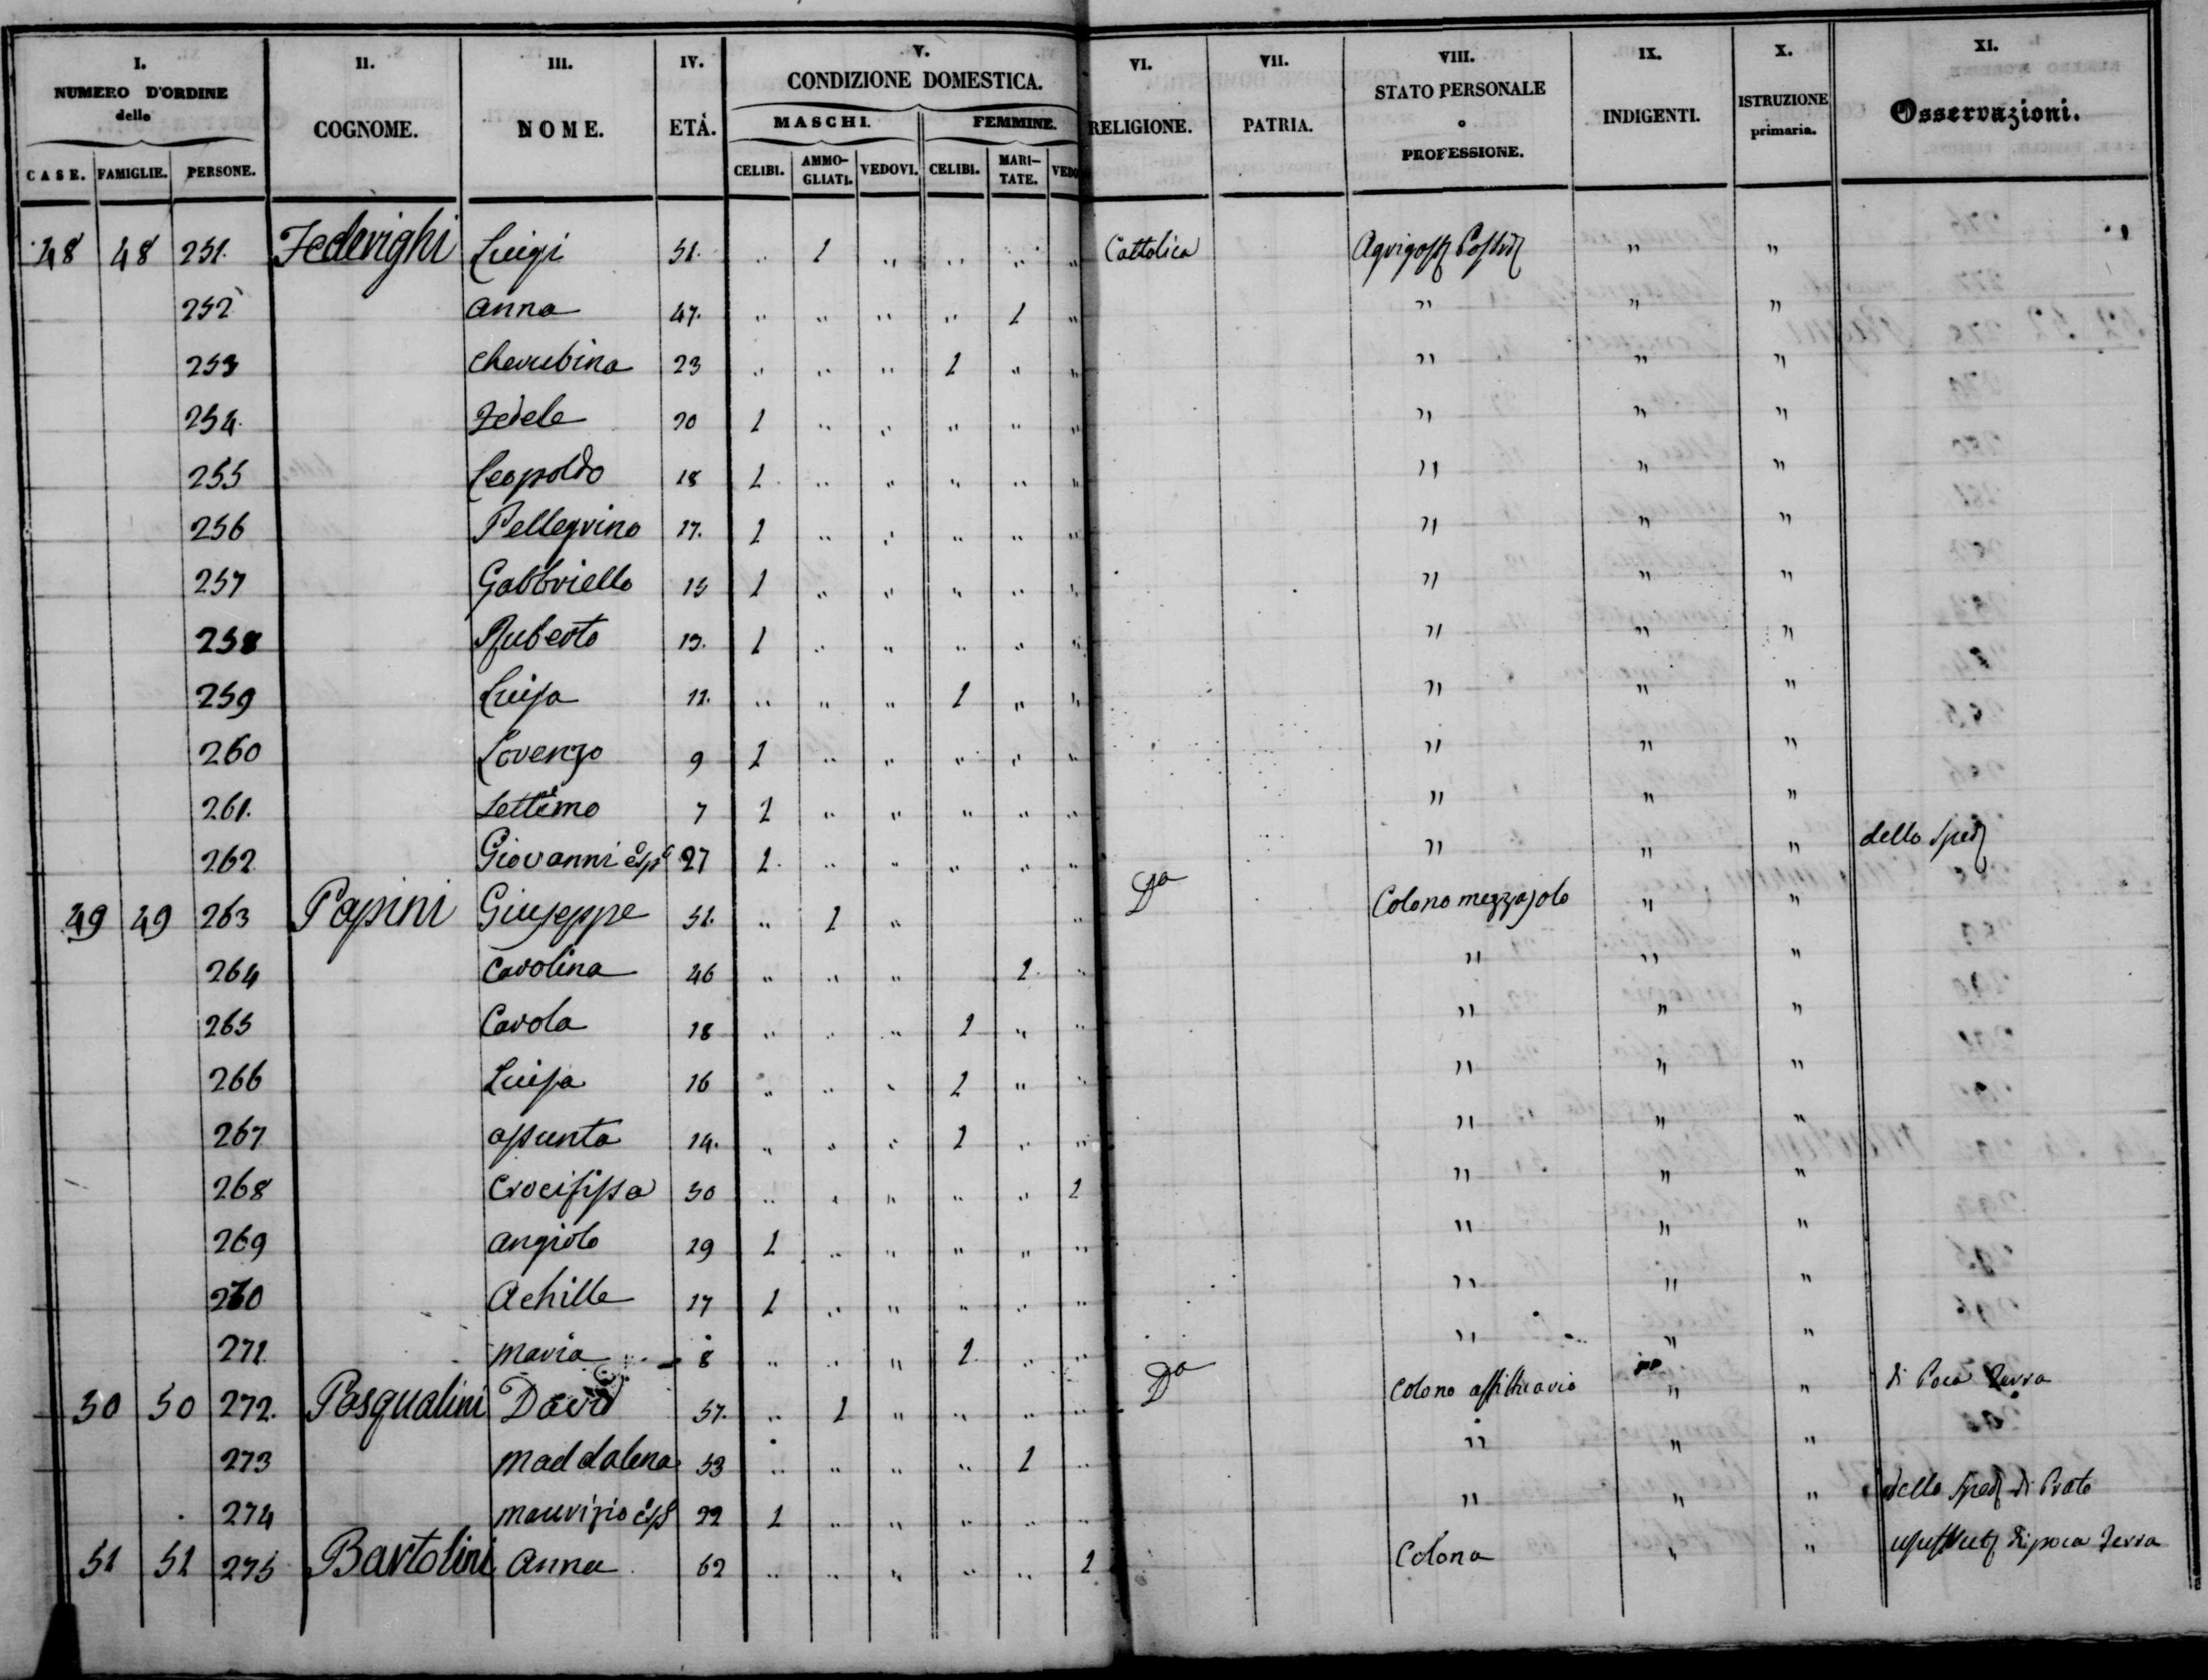 I. II. III. IV. V. VI. VII. VIII. IX. X. XI.
NUMERO D'ORDINE delle COGNOME. NOME. ETÀ. CONDIZIONE DOMESTICA. RELIGIONE. PATRIA. STATO PERSONALE o PROFESSIONE. INDIGENTI. ISTRUZIONE primaria. Osservazioni.
MASCHI. FEMMINE.
CASE. FAMIGLIE. PERSONE. CELIBI. AMMOGLIATI. VEDOVI. CELIBI. MARITATE. VEDO
48 48 251. Federighi Luigi 51. " 1 " " " " Cattolica " "
252 anna 47. " " " " 1 " " " "
253 Cherubina 23 " " " 1 " " " " "
254. Fedele 20 1 " " " " " " " "
255 Leopoldo 18 1 " " " " " " " "
256 Pellegrino 17. 1 " " " " " " " "
257 Gabbriello 15 1 " " " " " " " "
258 Ruberto 13. 1 " " " " " " " "
259 Luisa 11. " " " 1 " " " " "
260 Lorenzo 9 1 " " " " " " " "
261. Settimo 7 1 " " " " " " " "
262 Giovanni 27 1 " " " " " " " " dello Sped
49 49 263 Papini Giuseppe 51. " 1 " " Da Colono mezzajolo " "
264 Carolina 46 " " " 1 " " " "
265 Carola 18 " " " 1 " " " " "
266 Luisa 16 " " " 1 " " " " "
267 assunta 14. " " " 1 " " " " "
268 Crocifissa 50 " " " " " 1 " " "
269 angiolo 19 1 " " " " " " " "
270 Achille 17 1 " " " " " " " "
271. Maria 8 " " " 1 " " " " "
50 50 272. Pasqualini David 57. " 1 " " " " Da Colono affittuario " " di Poca Terra
273 Maddalena 53 " " " " 1 " " " "
274 Maurizio 22 1 " " " " " " " " dello Sped di Prato
51 51 275 Bartolini Anna 62 " " " " " 1 Colona " " di poca Terra